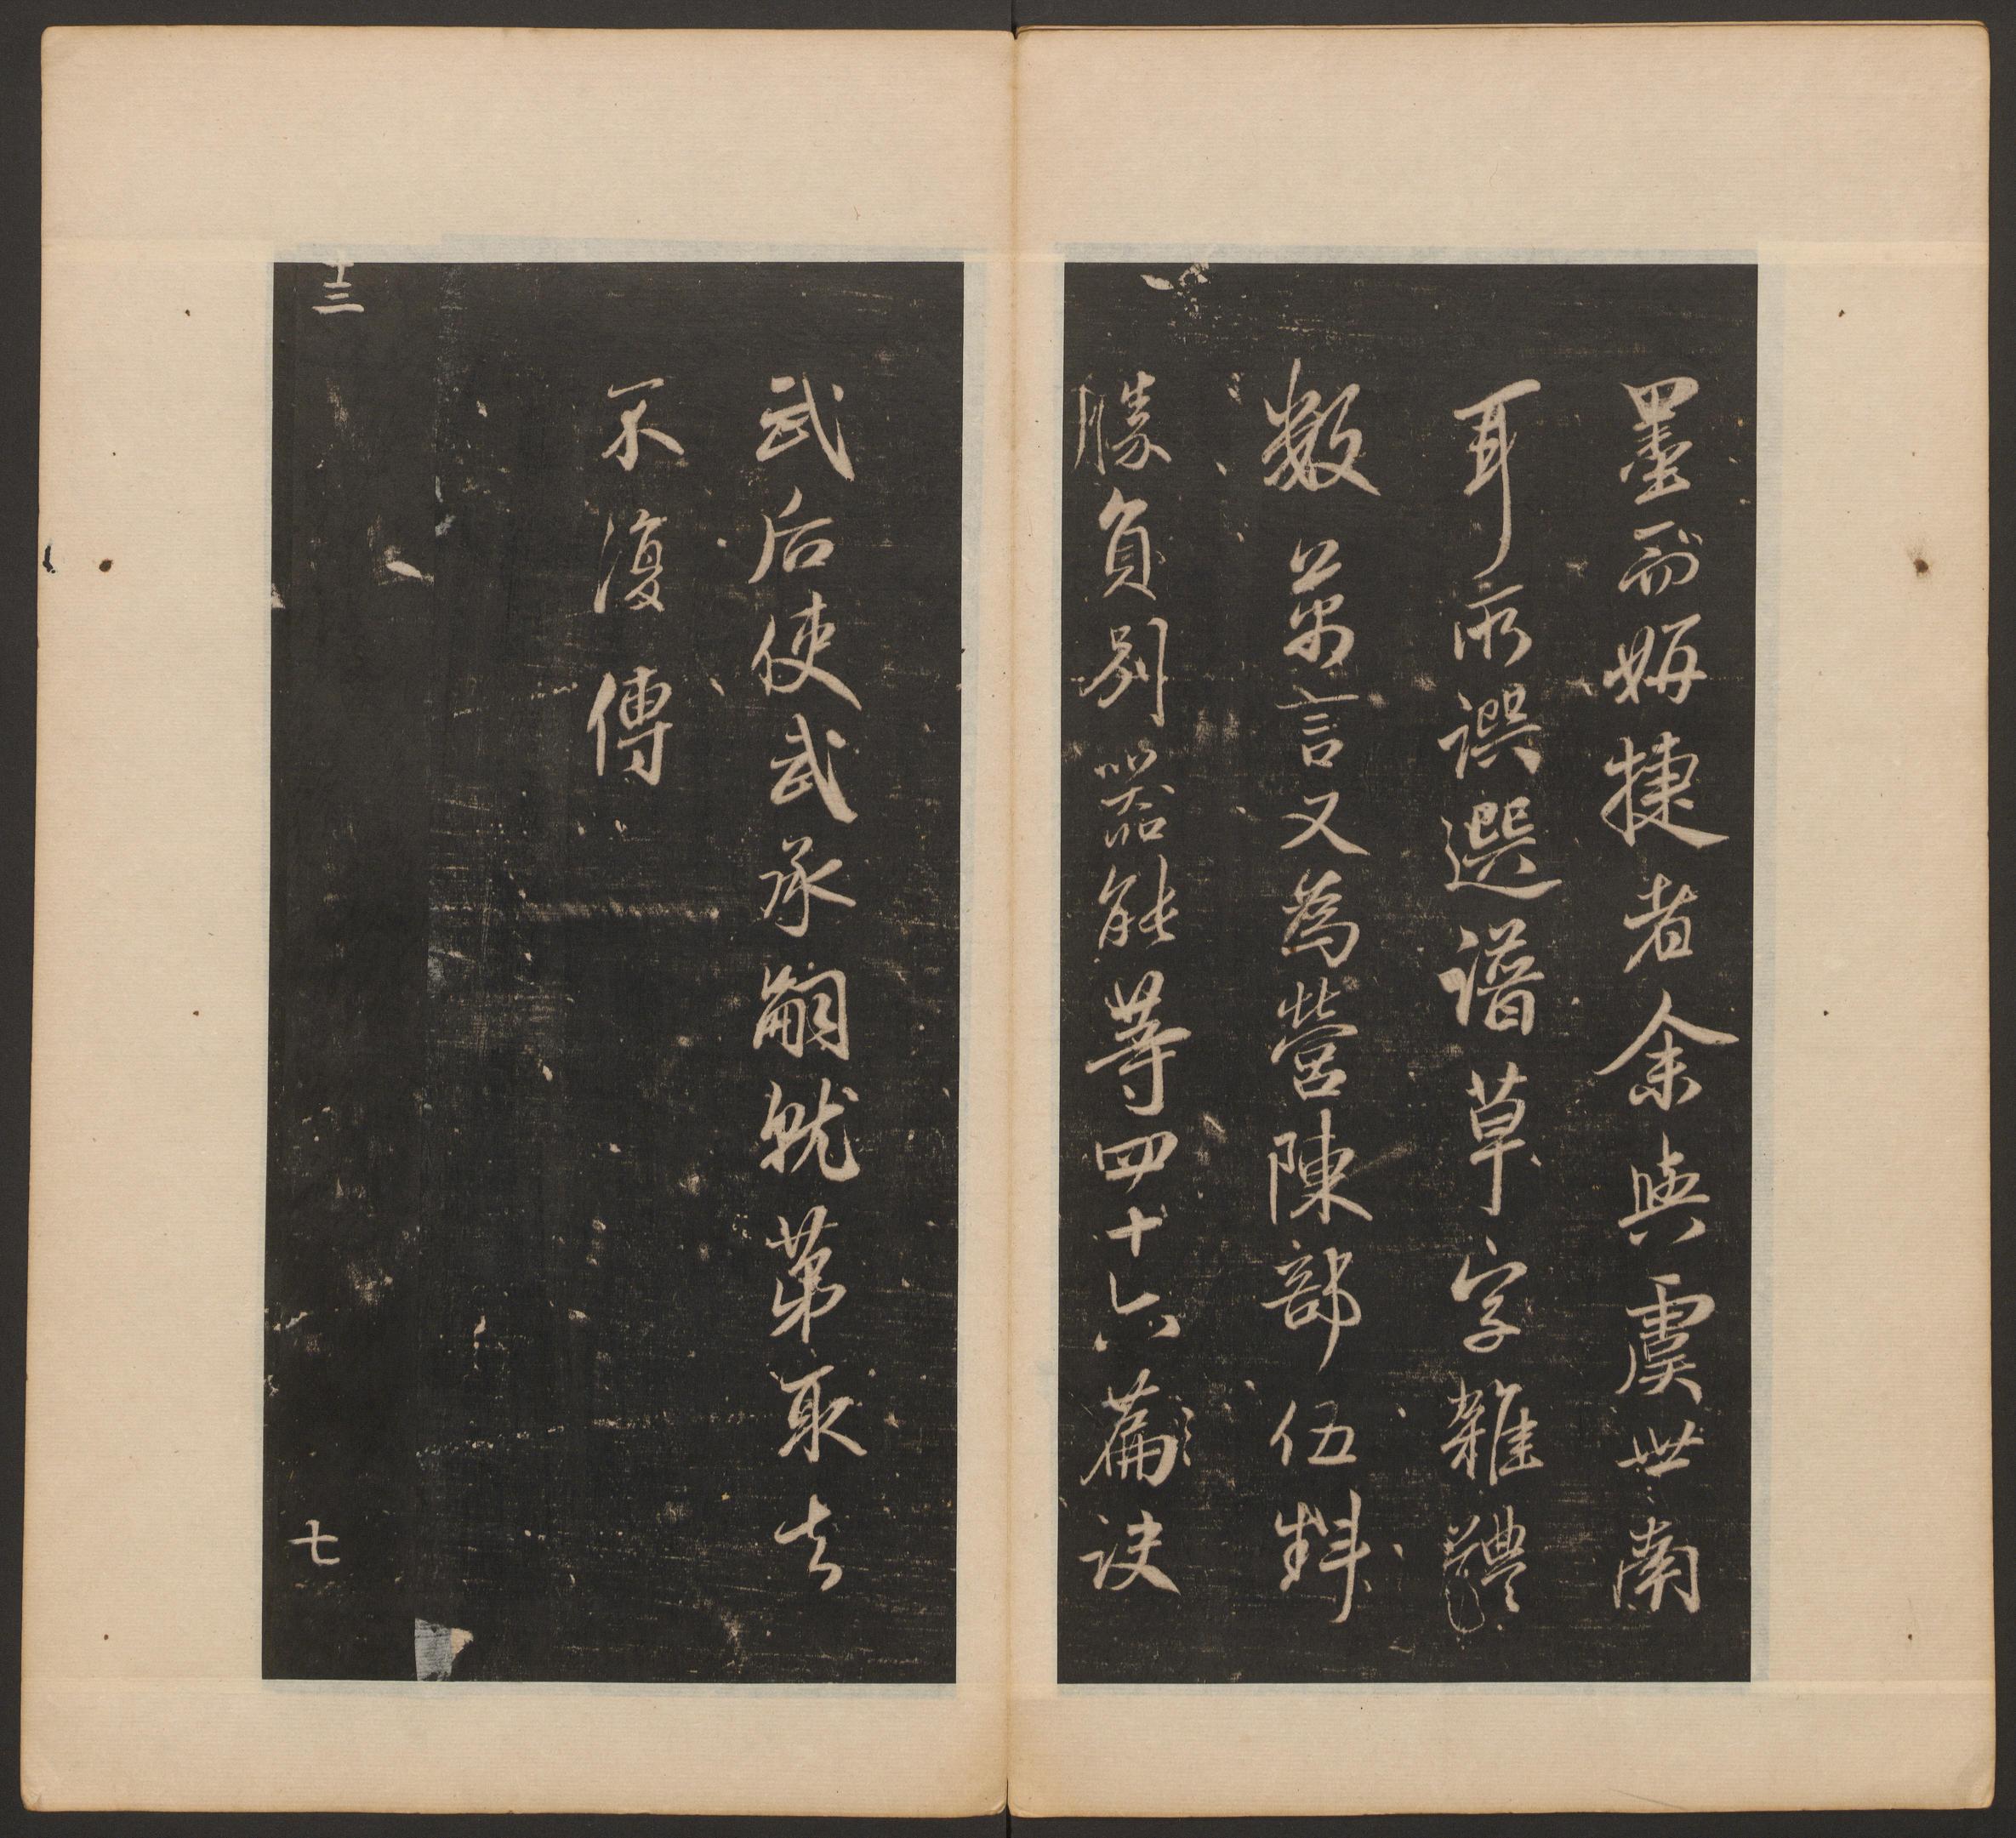 墨而妍捷者余與虞世南
耳所譔選譜草字雜體
數萬言又為營陳部伍料
勝負別器能等四十六篇訣
武后使武承嗣就苐取去
不復傳
十三
七